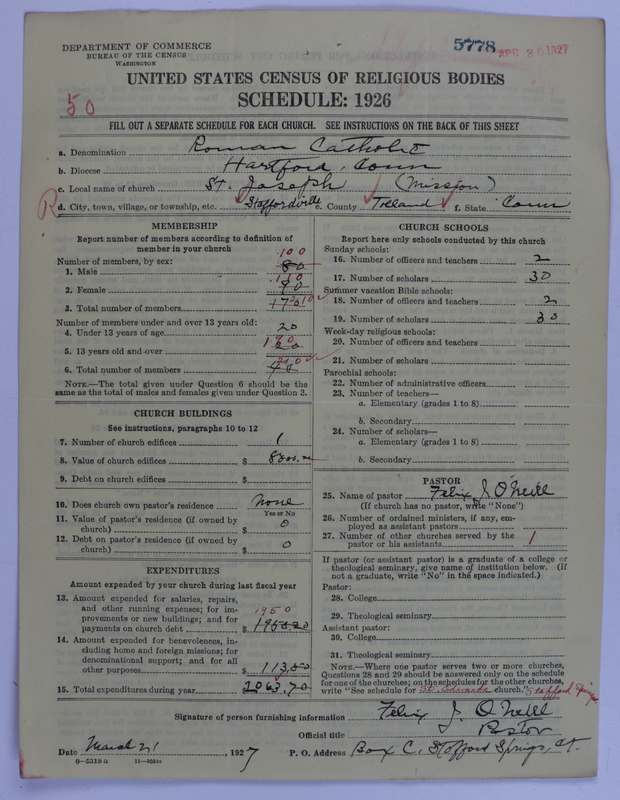 DEPARTMENT OF COMMERCE
BUREAU OF THE CENSUS
WASHINGTON
5778 APR 30 1927
UNITED STATES CENSUS OF RELIGIOUS BODIES
SCHEDULE: 1926
50
FILL OUT A SEPARATE SCHEDULE FOR EACH CHURCH. SEE INSTRUCTIONS ON THE BACK OF THIS SHEET
a. Denomination Roman Catholic
b. Diocese Hartford, Conn
c. Local name of church St. Joseph (Mission)
R d. City, town, village, or township, etc. Staffordville e. County Tolland f. State Conn
MEMBERSHIP
Report number of members according to definition of member in your church
Number of members, by sex:
1. Male 100 80
2. Female 110 90
3. Total number of members 210
Number of members under and over 13 years old:
4. Under 13 years of age 20
5. 13 years old and over 190
6. Total number of members 210
NOTE.—The total given under Question 6 should be the
same as the total of males and females given under Question 3.
CHURCH BUILDINGS
See instructions, paragraphs 10 to 12
7. Number of church edifices 1
8. Value of church edifices $
9. Debt on church edifices $
10. Does church own pastor's residence None
Yes or No
11. Value of pastor's residence (if owned by
church) $ 0
12. Debt on pastor's residence (if owned by
church) $ 0
EXPENDITURES
Amount expended by church during last fiscal year
13. Amount expended for salaries, repairs,
and other running expenses; for im-
provements or new buildings; and for
payments on church debt $ 1950
14. Amount expended for benevolences, in-
cluding home and foreign missions; for
denominational support; and for all
other purposes $ 113.50
15. Total expenditures during year $ 2063.70
CHURCH SCHOOLS
Report here only schools conducted by this church
Sunday schools:
16. Number of officers and teachers 2
17. Number of scholars 30
Summer vacation Bible schools:
18. Number of officers and teachers 2
19. Number of scholars 30
Week-day religious schools:
20. Number of officers and teachers
21. Number of scholars
Parochial schools:
22. Number of administrative officers
23. Number of teachers—
a. Elementary (grades 1 to 8)
b. Secondary
24. Number of scholars—
a. Elementary (grades 1 to 8)
b. Secondary
PASTOR
25. Name of pastor Felix J. O'Neill
(If church has no pastor, write "None")
26. Number of ordained ministers, if any, em-
ployed as assistant pastors
27. Number of other churches served by the
pastor or his assistants 1
If pastor (or assistant pastor) is a graduate of a college or
theological seminary, give name of institution below. (If
not a graduate, write "No" in the space indicated.)
Pastor:
28. College
29. Theological seminary
Assistant pastor:
30. College
31. Theological seminary
NOTE.—Where one pastor serves two or more churches,
Questions 28 and 29 should be answered only on the schedule
for one of the churches; on the schedules for the other churches,
write "See schedule for St. Edwards church." Stafford Springs
Signature of person furnishing information Felix J. O'Neill
Official title Pastor
Date March 21 1927 P. O. Address Box C, Stafford Springs, Ct.